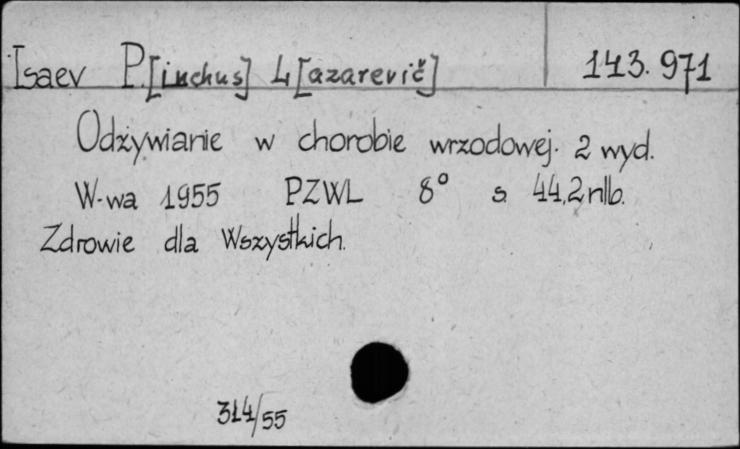 Isaev P.[inchus] L[azarevič] 143.971
Odżywianie w chorobie wrzodowej. 2 wyd.
W-wa 1955 PZWL 8° s. 44,2 nlb.
Zdrowie dla Wszystkich.
314/55